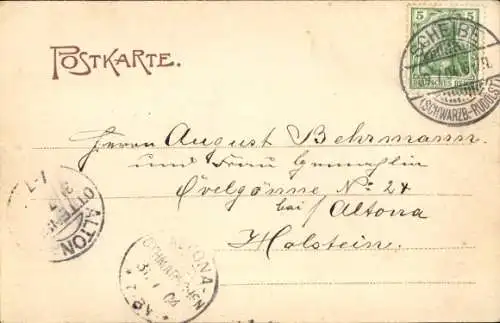 POSTKARTE.
5
SCHEIBE
(SCHWARZB.-RUDOLST.)
Herrn August Behrmann
und Frau Gemahlin
Övelgönne No 24
bei Altona
Holstein.
ALTON
OTTE
ALTONA-